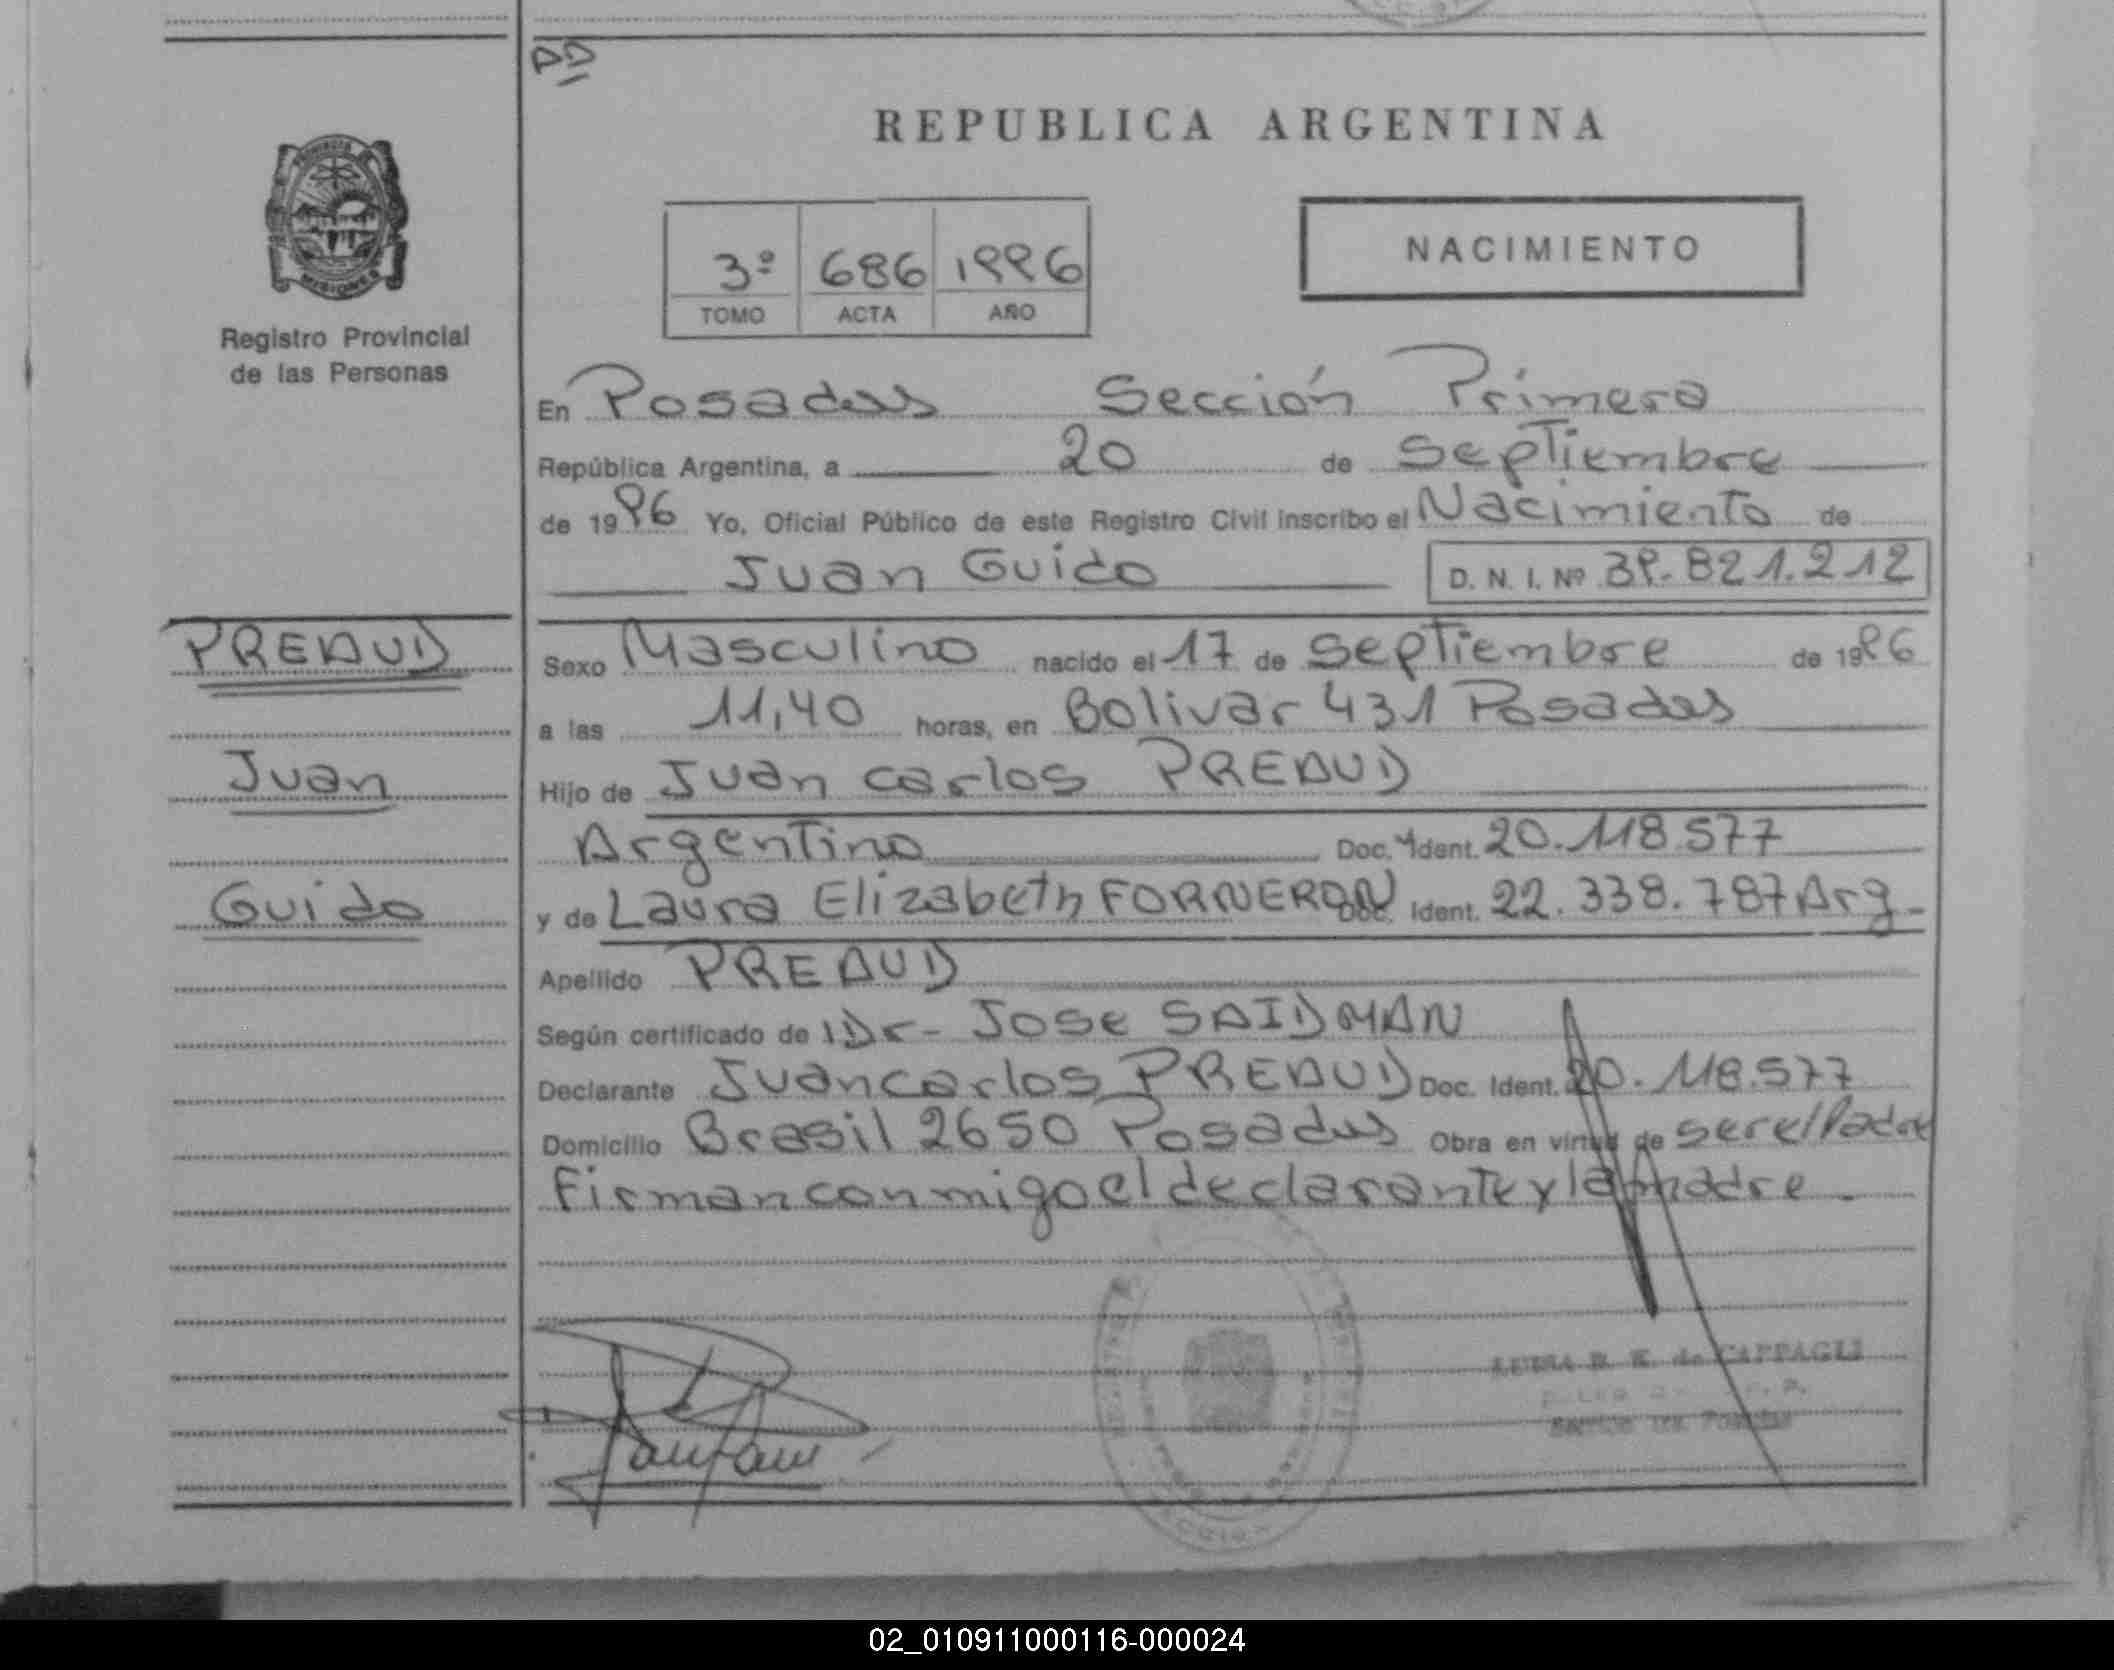 DD
REPUBLICA ARGENTINA
3º 686 1996
TOMO ACTA AÑO
NACIMIENTO
PROVINCIA DE
MISIONES
Registro Provincial
de las Personas
En Posadas Sección Primera
República Argentina, a 20 de Septiembre
de 1996 Yo, Oficial Público de este Registro Civil inscribo el Nacimiento de
Juan Guido D. N. I. Nº 39.821.212
PREAUD
Sexo Masculino nacido el 17 de septiembre de 1996
a las 11,40 horas, en Bolivar 431 Posadas
Juan
Hijo de Juan Carlos PREAUD
Argentino Doc. Ident. 20.118.577
Guido
y de Laura Elizabeth FORNERON Doc. Ident. 22.338.787 Arg.
Apellido PREAUD
Según certificado de Dr- Jose SAIDMAN
Declarante Juan Carlos PREAUD Doc. Ident. 20.118.577
Domicilio Brasil 2650 Posadas Obra en virtud de ser el Padre
Firman conmigo el declarante y la madre.
de CAPPAGLI
02_010911000116-000024